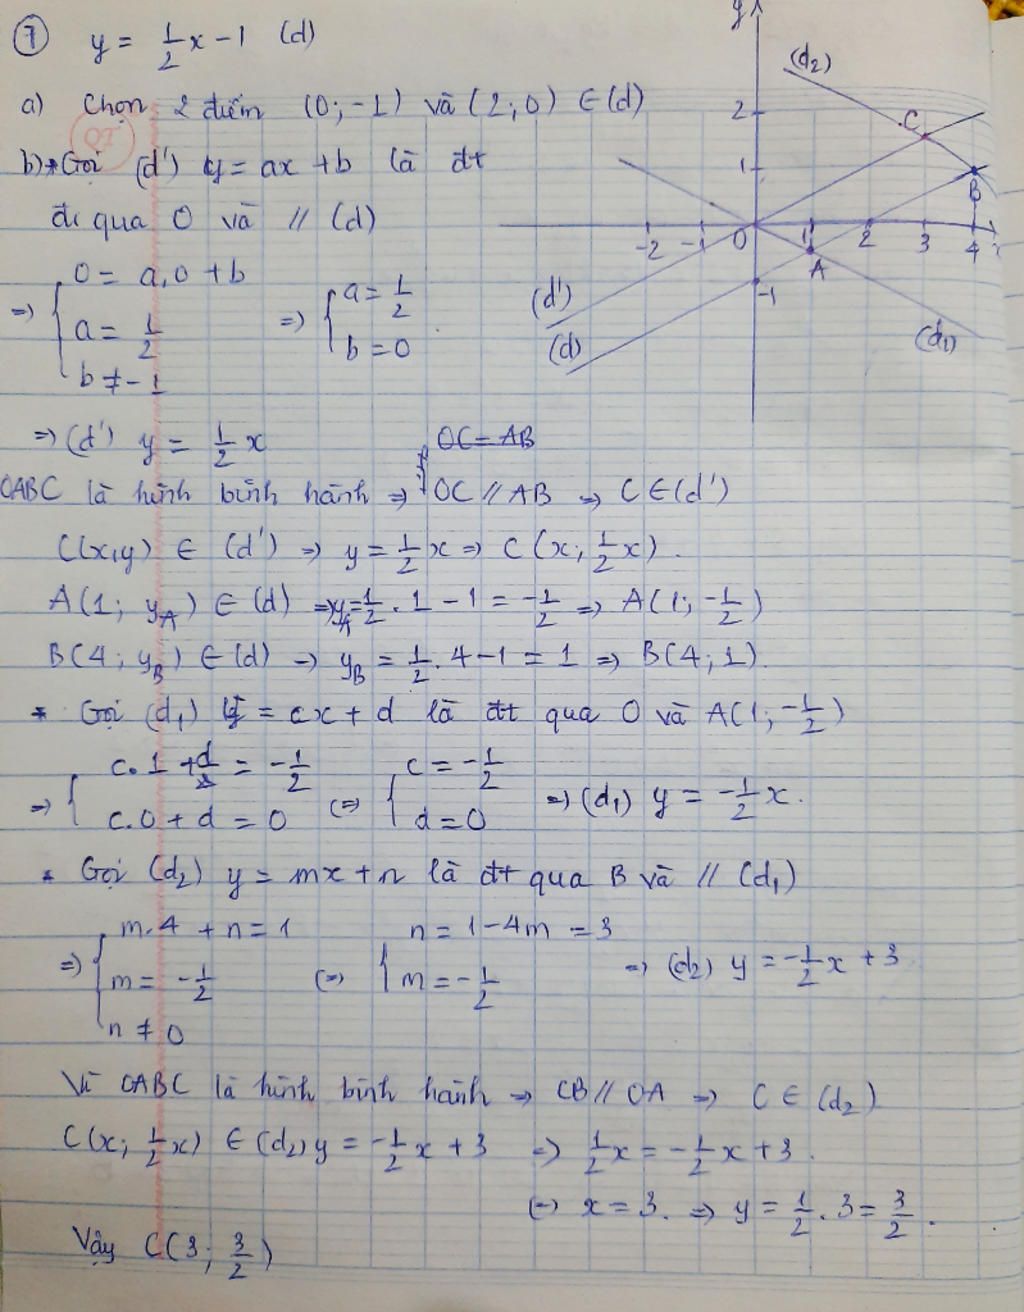 ⑦ y = 1/2 x - 1 (d)
a) Chọn 2 điểm (0; -1) và (2; 0) ∈ (d)
b) * Gọi (d') y = ax + b là đt
đi qua O và // (d)
=> { 0 = a.0 + b
a = 1/2
b ≠ -1
=> { a = 1/2
b = 0
=> (d') y = 1/2 x
OABC là hình bình hành => { OC = AB
OC // AB => C ∈ (d')
C(x, y) ∈ (d') => y = 1/2 x => C (x; 1/2 x).
A(1; y_A) ∈ (d) => y_A = 1/2 . 1 - 1 = -1/2 => A(1; -1/2)
B(4; y_B) ∈ (d) => y_B = 1/2 . 4 - 1 = 1 => B(4; 1).
* Gọi (d₁) y = cx + d là đt qua O và A(1; -1/2)
=> { c.1 + d = -1/2
c.0 + d = 0
(=>) { c = -1/2
d = 0
=> (d₁) y = -1/2 x.
* Gọi (d₂) y = mx + n là đt qua B và // (d₁)
=> { m.4 + n = 1
m = -1/2
n ≠ 0
(=>) { n = 1 - 4m = 3
m = -1/2
=> (d₂) y = -1/2 x + 3
Vì OABC là hình bình hành => CB // OA => C ∈ (d₂)
C(x; 1/2 x) ∈ (d₂) y = -1/2 x + 3 => 1/2 x = -1/2 x + 3.
(=) x = 3. => y = 1/2 . 3 = 3/2.
Vậy C(3; 3/2)
y
(d₂)
2
C
1
B
-2 -1 0 1 2 3 4 x
A
-1
(d')
(d)
(d₁)